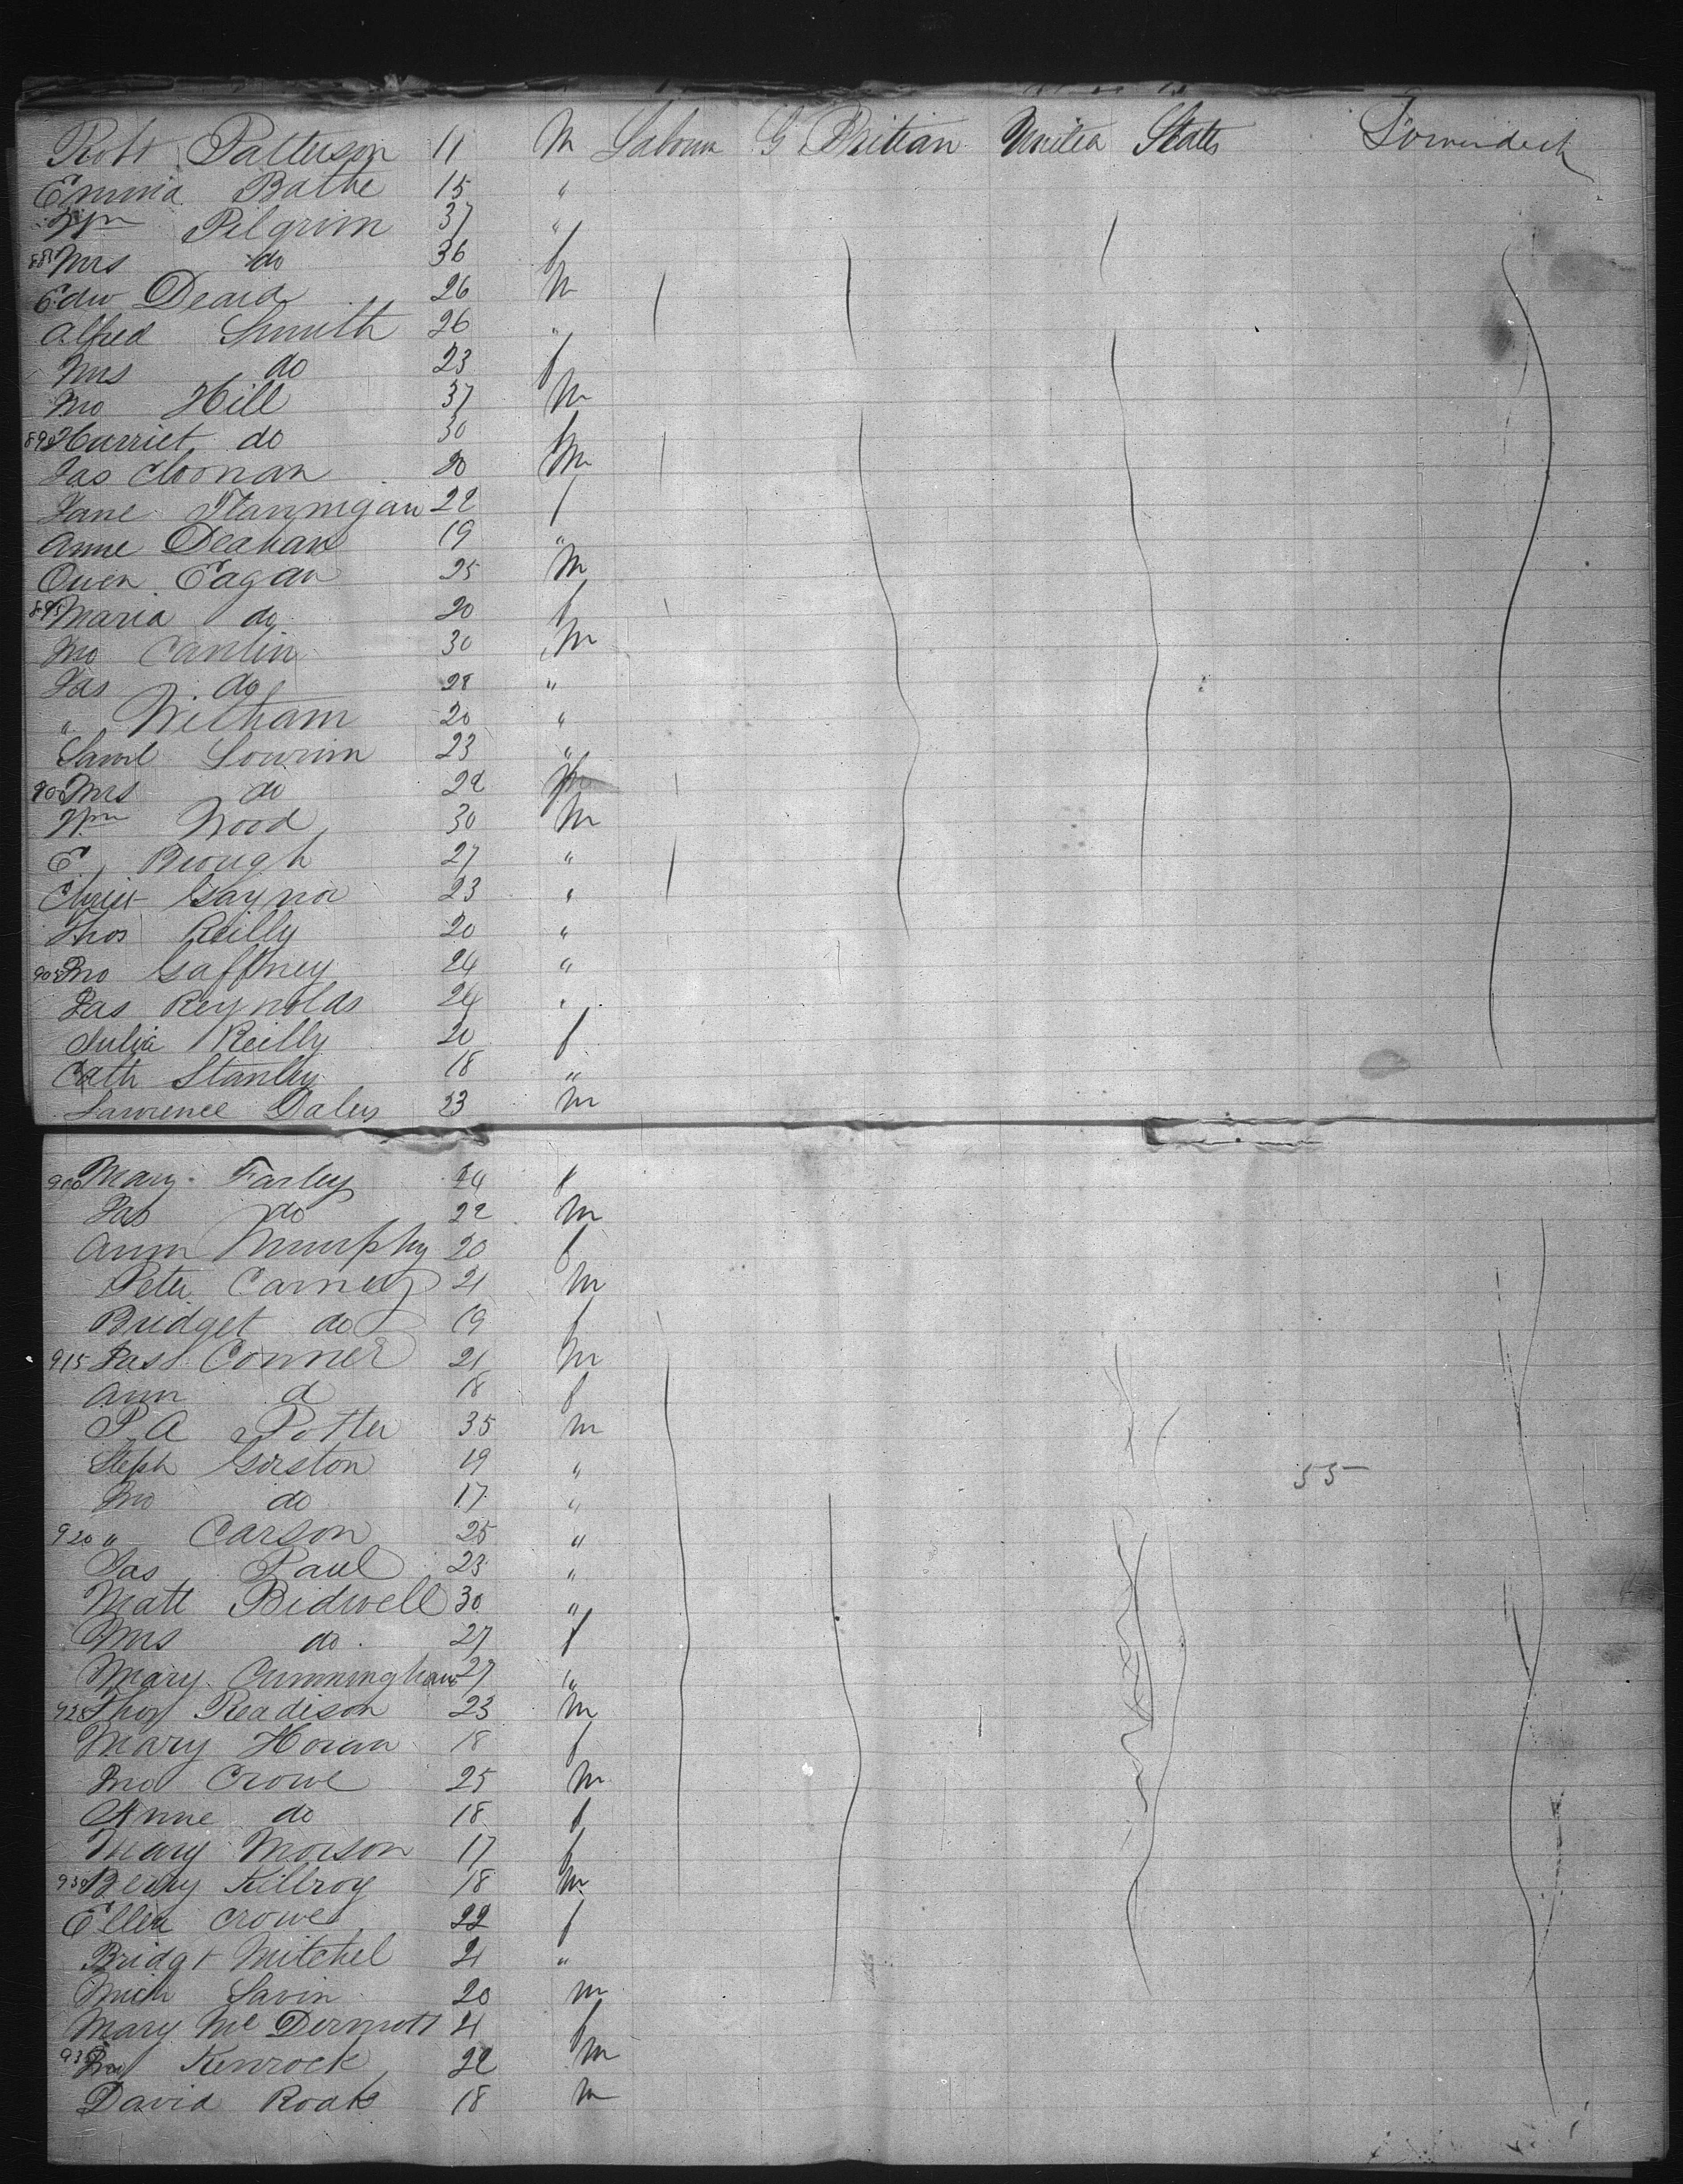 Robt Patterson 11 M Labourer G Britian United States Lowerdeck
Emma 15 "
Wm Pilgrim 37 "
Mrs do 36 f
Edw 26 M
Alfred Smith 26 "
Mrs do 23 f
Jno Hill 37 M
890 Harriet do 30 f
Jas Cloonan 20 M
Jane Flannigan 22 f
Anne 19 "
Owen Eagan 25 M
895 Maria do 20 f
Jno Cantlin 30 M
Jas do 28 "
" Witham 20 "
Saml 23 "
900 Mrs do 22 f
Wm Wood 30 M
E Brough 27 "
Christ Gaynor 23 "
Thos Reilly 20 "
905 Jno Gaffney 24 "
Jas Reynolds 24 "
Julia Reilly 20 f
Cath Stanley 18 "
Lawrence Daley 23 M
910 Mary Farley 24 f
Jas do 22 M
Ann Murphy 20 f
Peter Carney 21 M
Bridget do 19 f
915 Jas Conner 21 M
Ann d 18 f
P A Potter 35 M
Steph Gorston 19 "
Jno do 17 " 55
920 " Carson 25 "
Jas Paul 23 "
Matt Bidwell 30 "
Mrs do 27 f
Mary Cunningham 27 "
925 Thos Readison 23 M
Mary Horan 18 f
Jno Crowe 25 M
Anne do 18 f
Mary Morson 17 f
930 Killroy 18 M
Ellen Crowe 22 f
Bridgt Mitchel 21 "
Mich Lavin 20 M
Mary Mc Dermott 21 f
935 Kenrock 22 M
David Roak 18 M